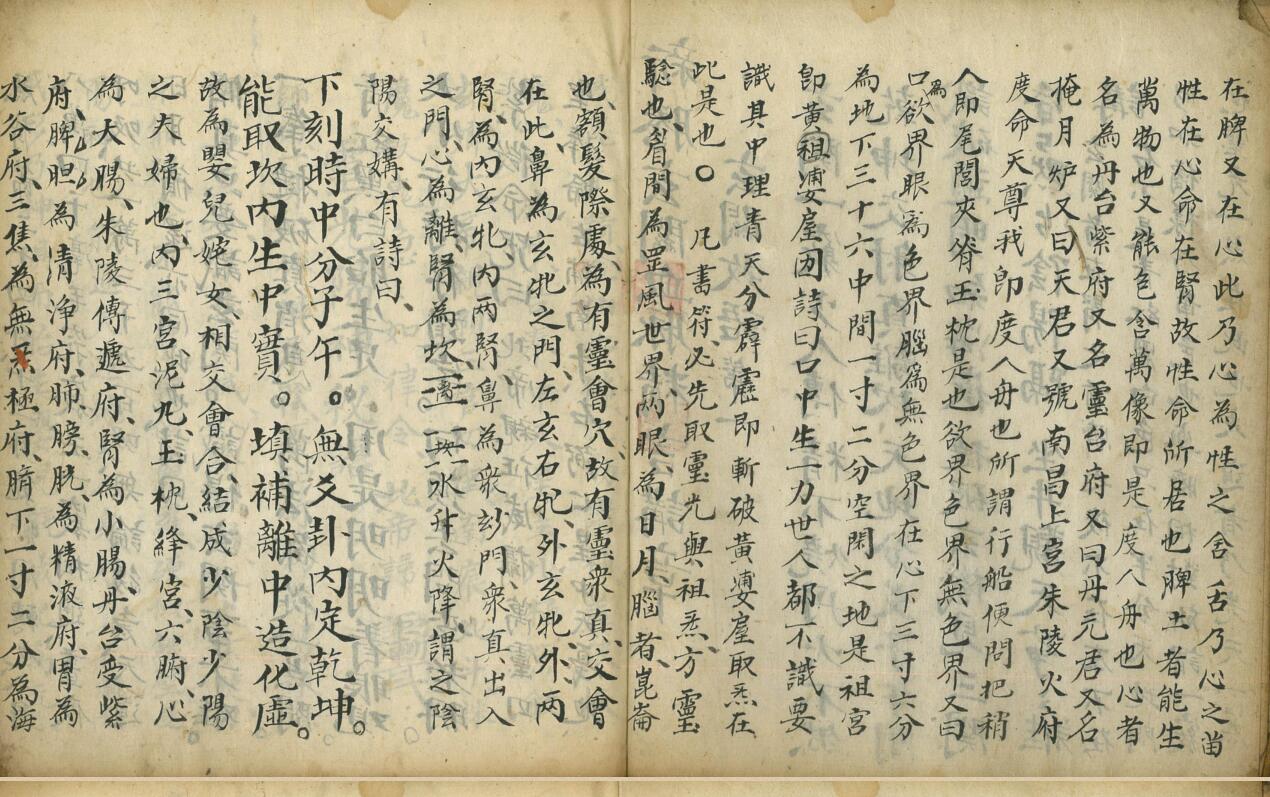 在脾又在心此乃心為性之舍舌乃心之苗
性在心命在腎故性命所居也脾土者能生
萬物也又能色含萬像即是度人舟也心者
名為丹台紫府又名靈台府又曰丹元君又名
掩月炉又曰天君又號南昌上宮朱陵火府
度命天尊我即度人舟也所謂行船便問把稍
人即尾閭夾脊玉枕是也欲界色界無色界又曰
口為欲界眼為色界腦為無色界在心下三寸六分
為地下三十六中間一寸二分空閑之地是祖宮
即黃祖婆屋囝詩曰口中生一力世人都不識要
識其中理青天分霹靂即斬破黃婆屋取炁在
此是也○凡書符必先取靈光與祖炁、方靈
驗也、眉間為罡風世界、兩眼、為日月、腦者、崑崙
也、額髮際處、為有靈會穴、故有靈衆真、交會
在此、鼻為玄牝之門、左玄右牝、外玄牝、外、兩
腎、為內玄牝、內兩腎、鼻為衆玅門、衆真出入
之門、心為離、腎為坎、離坎水升火降、謂之陰
陽交媾、有詩曰、
下刻時中分子午。無爻卦內定乾坤。
能取坎內生中實。填補離中造化虛。
故為嬰兒姹女、相交會合、結成少陰少陽
之夫婦也、內三宮、泥丸、玉枕、絳宮、六腑、心
為大腸、朱陵傳遞府、腎為小腸、丹台受紫
府、脾胆為清淨府、肺、膀、胱、為精液府、胃為
水谷府、三焦、為無炁極府、臍下一寸二分為海